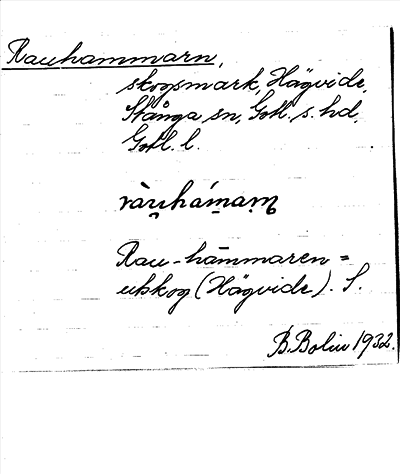 Rauhammarn,
skogsmark, Hägvide,
Stånga sn, Gotl. s. hd,
Gotl. l.
ràu̯hám̱am̥
Rau-hāmmaren =
utskog (Hägvide). S.
B. Bolin 1932.